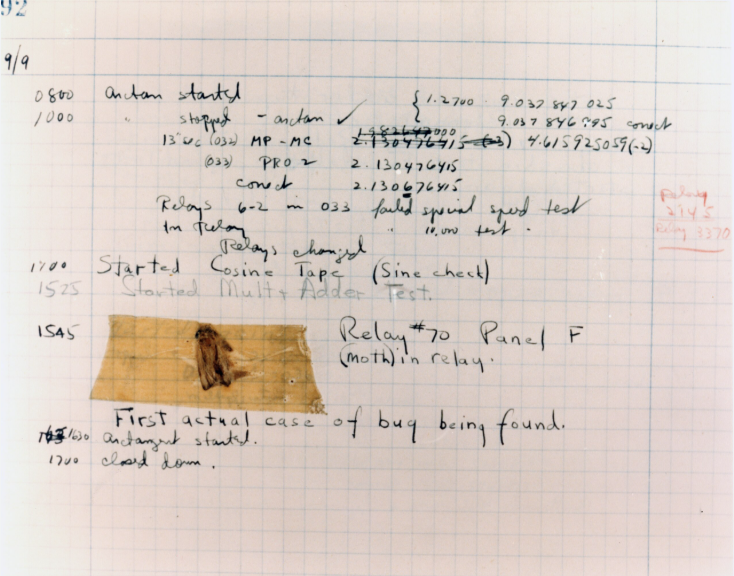 92
9/9
0800 arctan started { 1.2700 9.037 847 025
1000 " stopped - arctan ✓ 9.037 846 995 correct
13"uc (032) MP - MC 1.982647000 2.130476415 (-3) 4.615925059(-2)
(033) PRO 2 2.130476415
correct 2.130676415
Relays 6-2 in 033 failed special speed test
In Relay " 10.000 test .
Relays changed
Relay
2145
Relay 3370
1700 Started Cosine Tape (Sine check)
1525 Started Mult+ Adder Test.
1545 Relay #70 Panel F
(moth) in relay.
First actual case of bug being found.
1630 arctangent started.
1700 closed down.